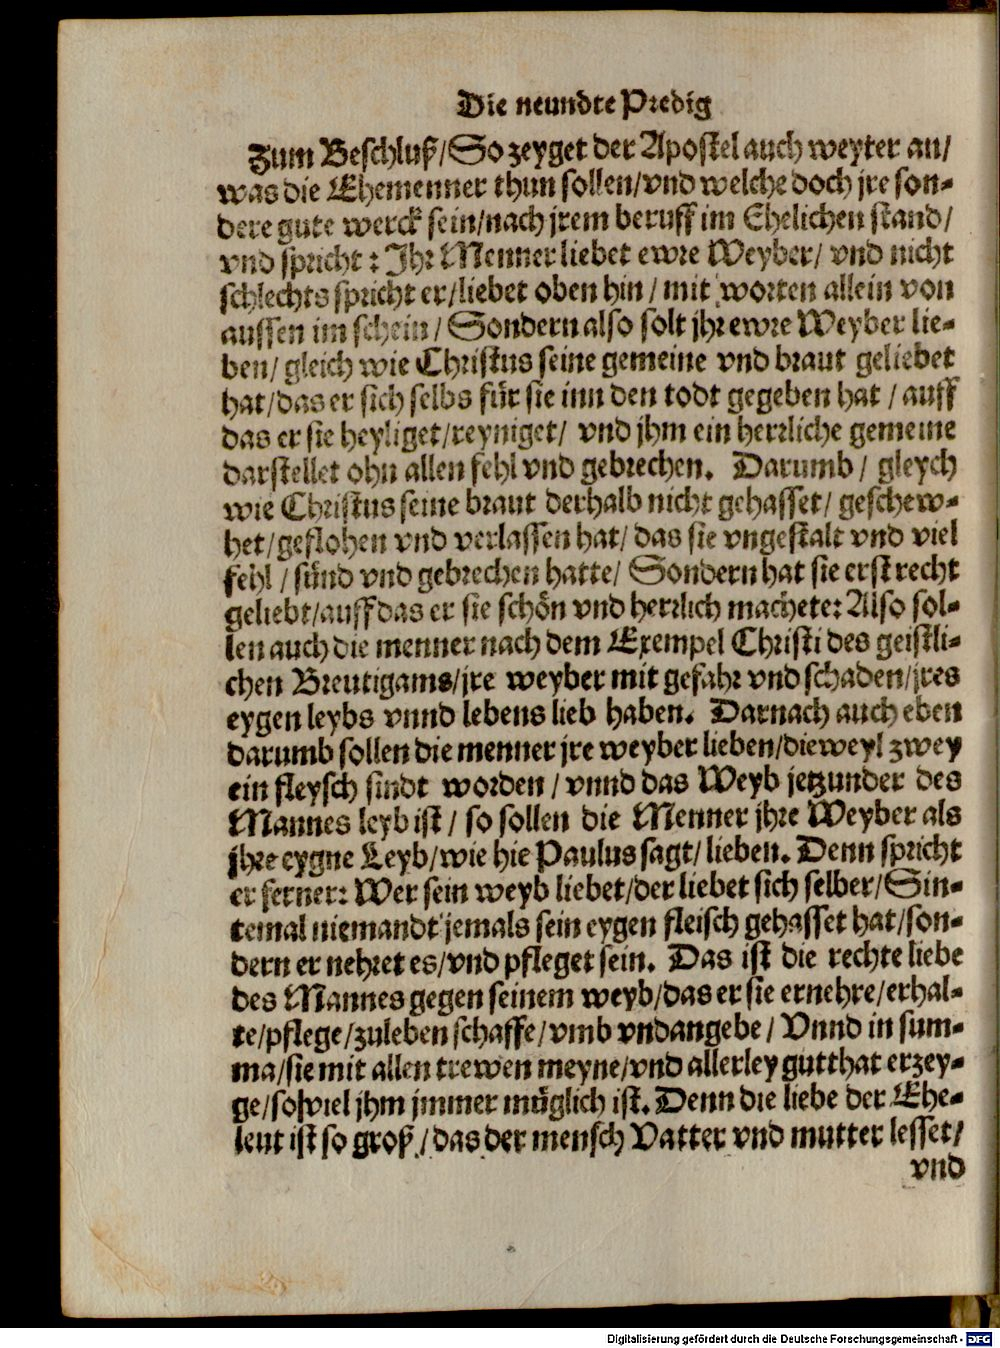 Die neundte Predig
Zum Beschluß/ So zeyget der Apostel auch weyter an/
was die Ehemenner thun sollen/ vnd welche doch jre son-
dere gute werck sein/ nach jrem beruff im Ehelichen stand/
vnd spricht: Jhr Menner liebet ewre Weyber/ vnd nicht
schlechts spricht er/ liebet oben hin/ mit worten allein von
aussen im schein/ Sondern also solt jhr ewre Weyber lie-
ben/ gleich wie Christus seine gemeine vnd braut geliebet
hat/ das er sich selbs für sie inn den todt gegeben hat/ auff
das er sie heyliget/ reyniget/ vnd jhm ein herrliche gemeine
darstellet ohn allen fehl vnd gebrechen. Darumb/ gleych
wie Christus seine braut derhalb nicht gehasset/ geschew-
het/ geflohen vnd verlassen hat/ das sie vngestalt vnd viel
fehl/ sünd vnd gebrechen hatte/ Sondern hat sie erst recht
geliebt/ auff das er sie schön vnd herrlich machete: Also sol-
len auch die menner nach dem Exempel Christi des geistli-
chen Breutigams/ jre weyber mit gefahr vnd schaden/ jres
eygen leybs vnnd lebens lieb haben. Darnach auch eben
darumb sollen die menner jre weyber lieben/ dieweyl zwey
ein fleysch sindt worden/ vnnd das Weyb jetzunder des
Mannes leyb ist/ so sollen die Menner jhre Weyber als
jhre eygne Leyb/ wie hie Paulus sagt/ lieben. Denn spricht
er ferner: Wer sein weyb liebet/ der liebet sich selber/ Sin-
temal niemandt jemals sein eygen fleisch gehasset hat/ son-
dern er nehret es/ vnd pfleget sein. Das ist die rechte liebe
des Mannes gegen seinem weyb/ das er sie ernehre/ erhal-
te/ pflege/ zuleben schaffe/ vmb vndangebe/ Vnnd in sum-
ma/ sie mit allen trewen meyne/ vnd allerley gutthat erzey-
ge/ so viel jhm jmmer müglich ist. Denn die liebe der Ehe-
leut ist so groß/ das der mensch Vatter vnd mutter lesset/
vnd
Digitalisierung gefördert durch die Deutsche Forschungsgemeinschaft - DFG